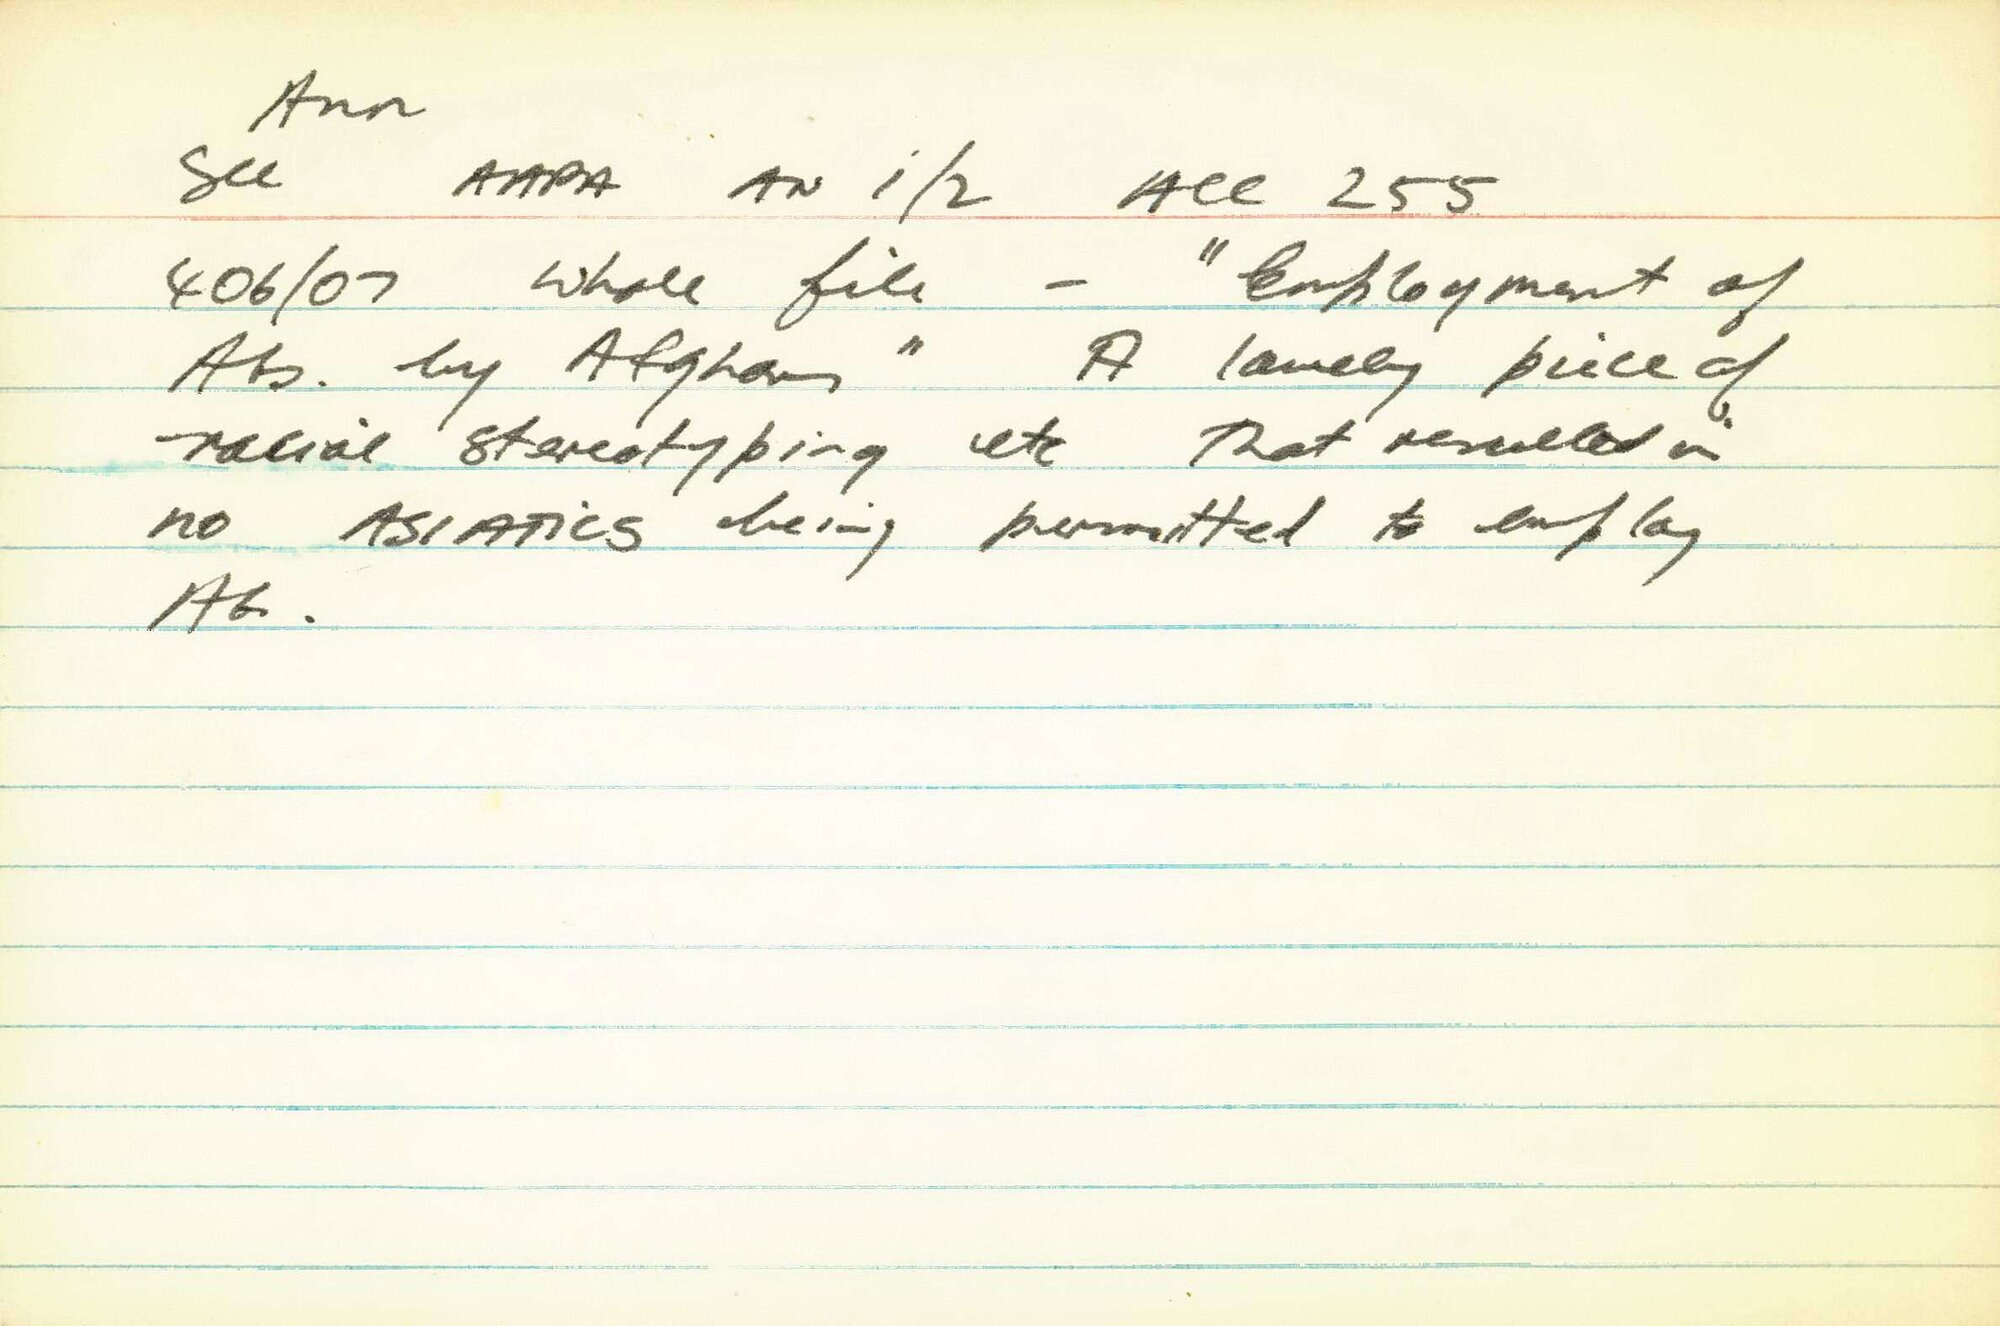 Ann
See AAPA AN 1/2 ACC 255
406/07 whole file - "Employment of
Abs. by Afghans" A lovely piece of
racial stereotyping etc That resulted in
no ASIATICS being permitted to employ
Ab.